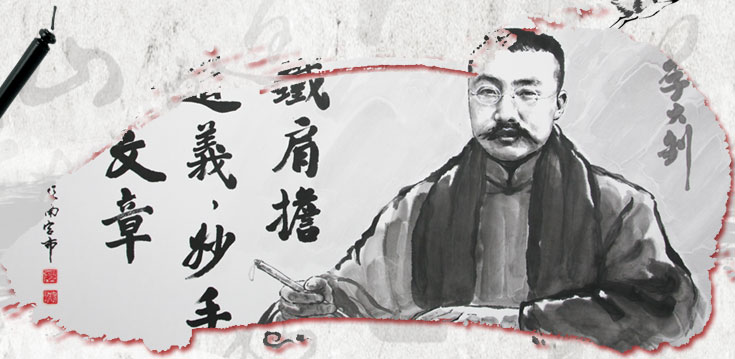 李大钊
鐵肩擔
道義，妙手
文章